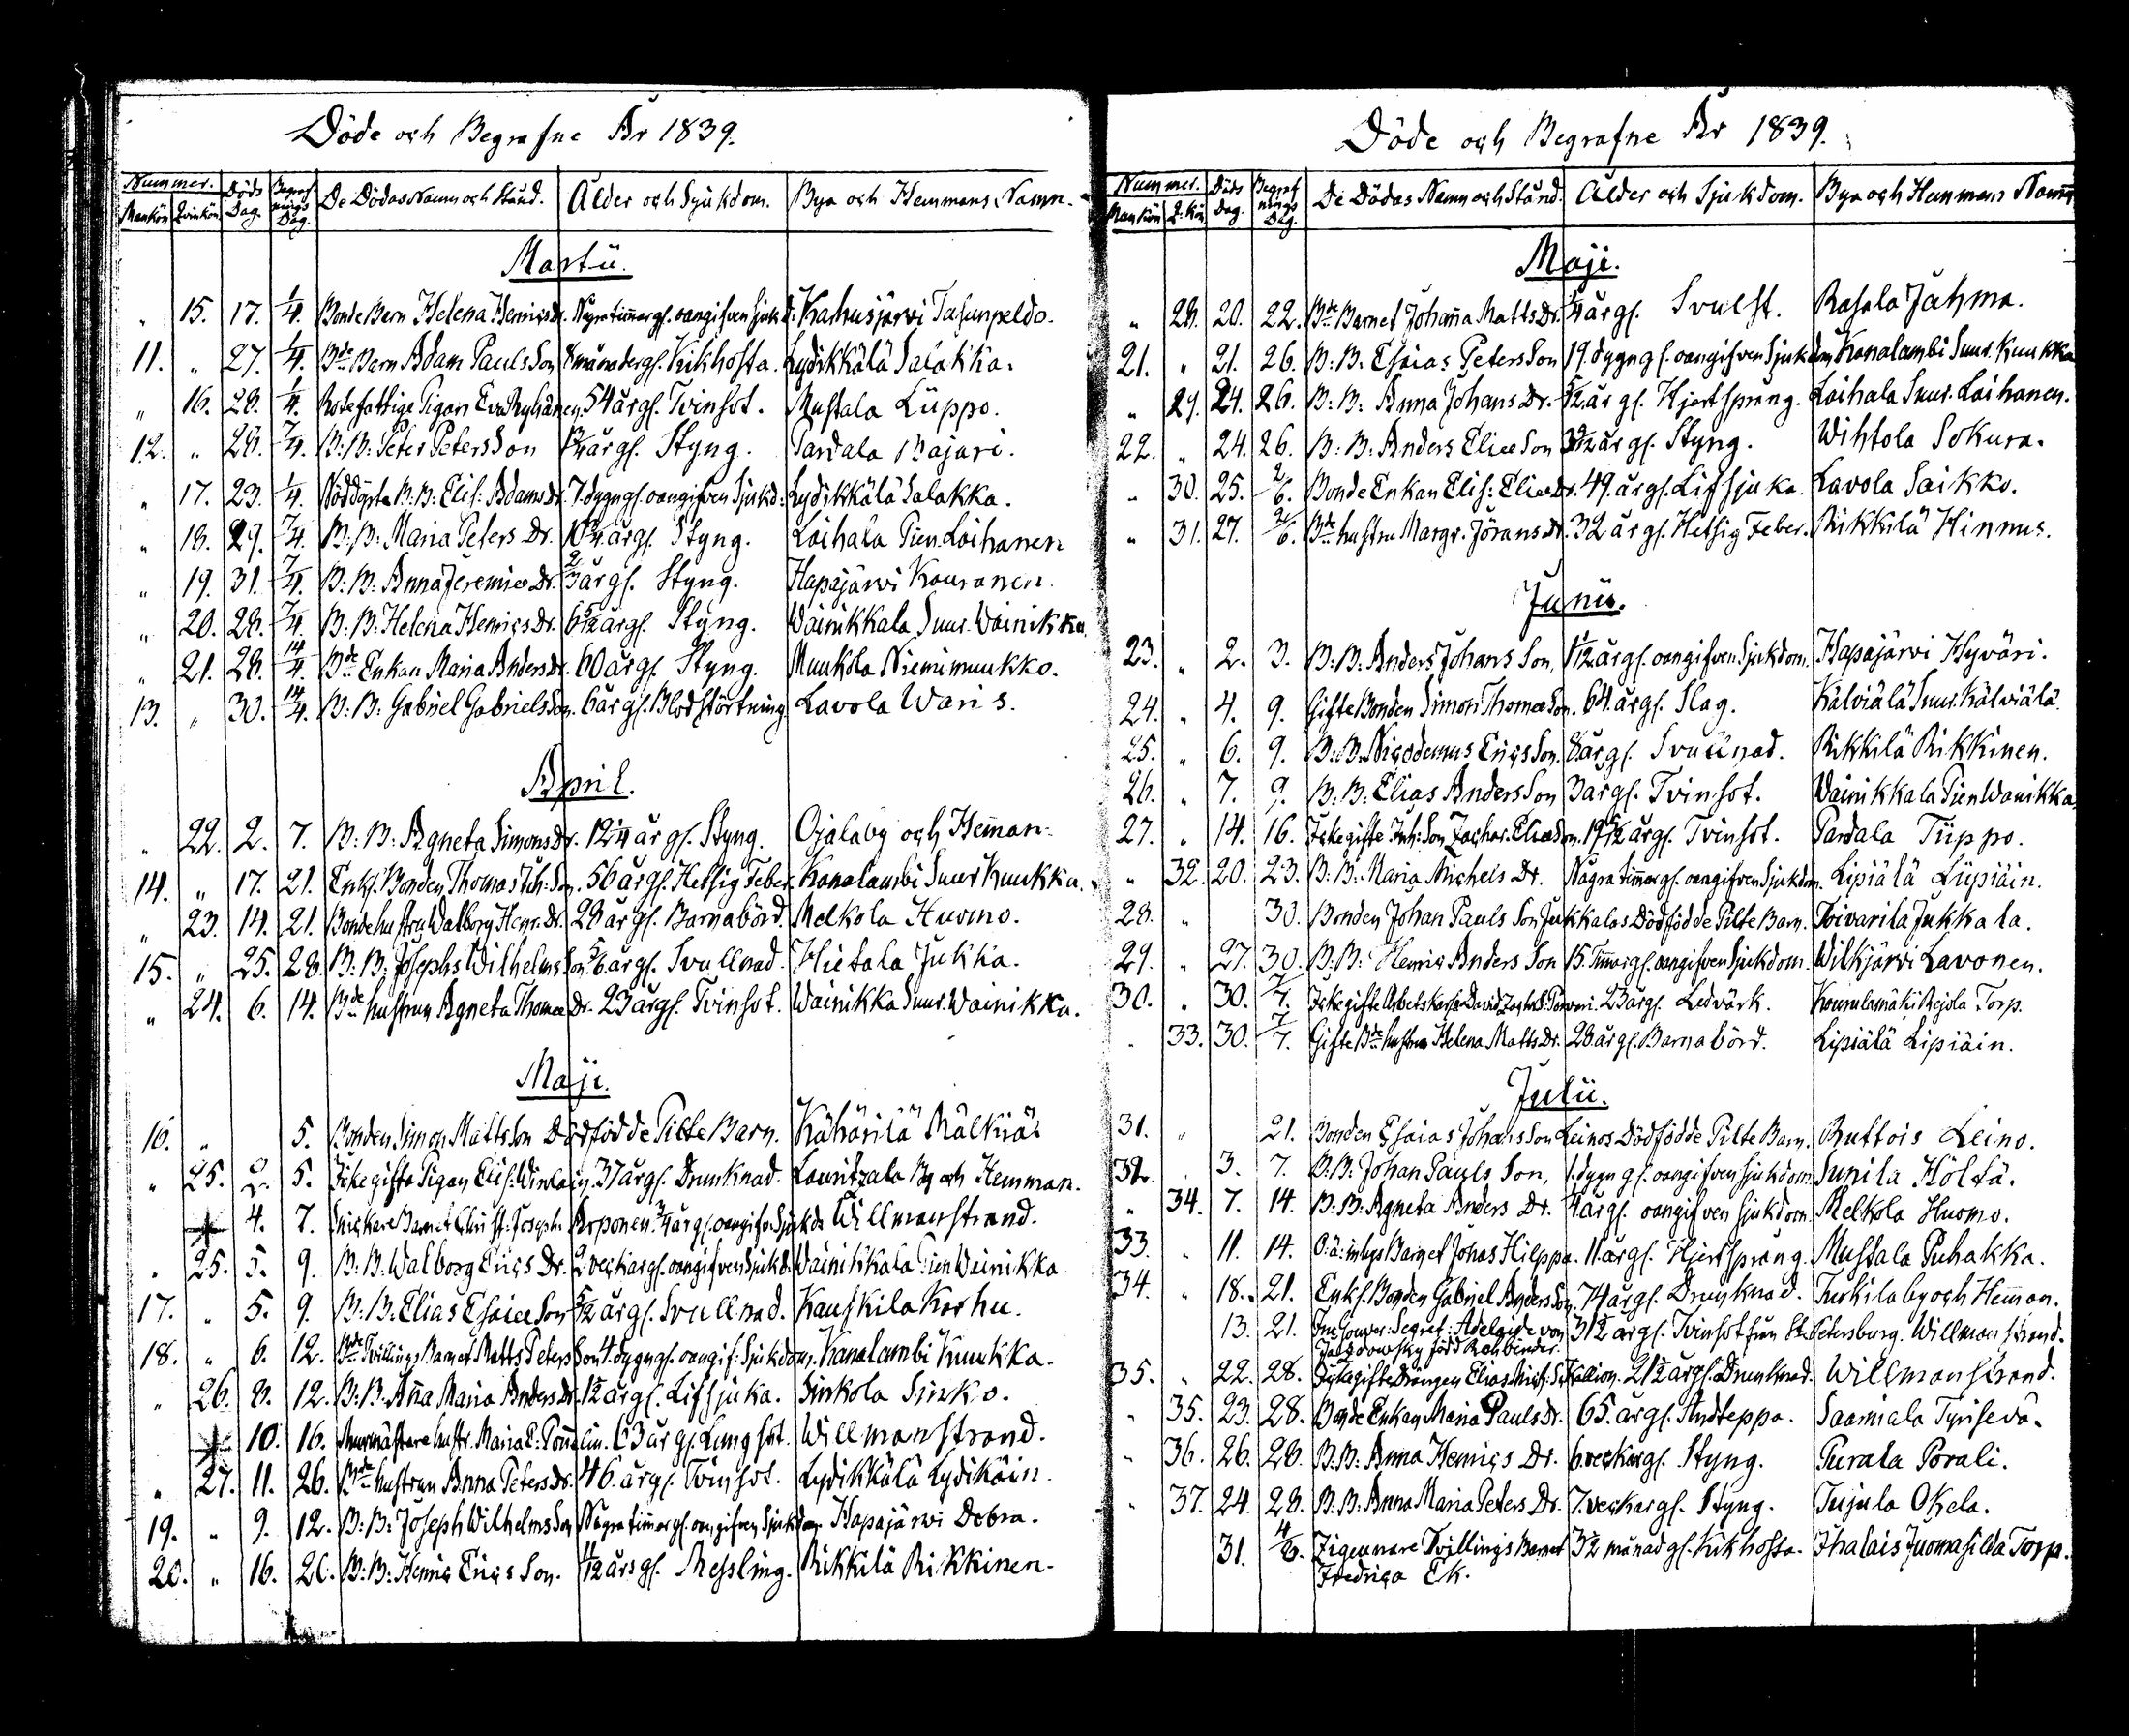 Döde och Begrafne År 1839.
Nummer. Döds Dag. Begrafnings Dag. De Dödas Namn och Stånd. Ålder och Sjukdom. Bya och Hemmans Namn.
Mankön Qvinkön
Martii.
" 15. 17. 1/4. Bonde Barn Helena Henrics Dr. Några timmar gl. oangifven Sjukd: Karhusjärvi Tasunpeldo.
11. " 27. 1/4. Bde Barn Adam Pauls Son 8 månader gl. Kikhosta. Lydikkälä Salakka.
" 16. 28. 1/4. Rotefattige Pigan Eva Ryhänen. 54 år gl. Tvinsot. Mustala Lüppo.
12. " 28. 7/4. B: B: Peter Peters Son år gl. Styng. Pardala Bajari.
" 17. 23. 1/4. Nöddöpta B: B: Elis: Adams Dr. 7 dygn gl. oangifven Sjukd: Lydikkälä Salakka.
" 18. 29. 7/4. B: B: Maria Peters Dr. år gl. Styng. Loihala Pien Loihanen
" 19. 31. 7/4. B: B: Anna Jeremiæ Dr. 2/3 år gl. Styng. Hapajärvi Kouranen.
" 20. 28. 7/4. B: B: Helena Henrics Dr. 6 5/12 år gl. Styng. Wainikkala Suur. Wainikka.
" 21. 28. 14/4. Bde Enkan Maria Anders Dr. 60 år gl. Styng. Muukola Niemimuukko.
13. " 30. 14/4. B: B: Gabriel Gabriels Son. 6 år gl. Blodstörtning. Lavola Waris.
April.
" 22. 2. 7. B: B: Agneta Simons Dr. 12 1/4 år gl. Styng. Ojalaby och Hem̄an.
14. " 17. 21. Enkl. Bonden Thomas Joh: Son. 56 år gl. Hetsig Feber. Kanalambi Suur Kuukka.
" 23. 14. 21. Bonde hustru Walborg Henr. Dr. 28 år gl. Barnabörd. Melkola Huomo.
15. " 25. 28. B: B: Josephs Wilhelms Son. 5/6 år gl. Svullnad. Hietala Jukka.
" 24. 6. 14. Bde hustrun Agneta Thomæ Dr. 23 år gl. Tvinsot. Wainikka Suur. Wainikka.
Maji.
16. " 5. Bonden Simon Matts Son Dödfödde Pilte Barn. Kähärilä Mälkiä
" 25. 2. 5. Icke gifta Pigan Elis: 37 år gl. Drunknad. Lauritzala By och Hemman.
4. 7. Snickare Barnet Christ: Joseph: Arponen. 3/4 år gl. oangifv: Sjukdo Willmanstrand.
" 25. 5. 9. B: B: Walborg Erics Dr. 2 veckar gl. oangifven Sjukd. Wainikkala Pien Wainikka
17. " 5. 9. B: B: Elias Esaiæ Son 5/12 år gl. Svullnad. Kauskila Korhu.
18. " 6. 12. Bde Tvillings Barnet Matts Peters Son 4. dygn gl. oangif: Sjukdom. Kanalambi Kuukka.
" 26. 8. 12. B: B: An̄a Maria Anders Dr. 1 1/2 år gl. Lifsjuka. Sinkola Sinko.
10. 16. Murmästare hustr. Maria E. 63 år gl. Lungsot. Willmanstrand.
" 27. 11. 26. Bde hustrun Anna Peters Dr. 46. år gl. Tvinsot. Lydikkälä Lydikäin.
19. " 9. 12. B: B: Joseph Wilhelms Son Några tim̄ar gl. oangifven Sjukdom. Hapajärvi Dobra.
20. " 16. 26. B: B: Henric Erics Son. års gl. Messling. Rikkilä Rikkinen.
Döde och Begrafne År 1839.
Nummer. Döds Dag. Begrafnings Dag. De Dödas Namn och Stånd. Ålder och Sjukdom. Bya och Hemmans Namn
Mankön Q: Kön
Maji.
" 28. 20. 22. Bde Barnet Johan̄a Matts Dr. 1/4 år gl. Svulst. Rasala Jahma.
21. " 21. 26. B: B: Esaias Peters Son 19. dygn gl. oangifven Sjukdom. Kanalambi Suur. Kuukka
" 29. 24. 26. B: B: Anna Johans Dr. år gl. Hjertsprång. Loihala Suur. Loihanen.
22. " 24. 26. B: B: Anders Eliæ Son år gl. Styng. Wihtola Sokura.
" 30. 25. 2/6. Bonde Enkan Elis: Eliæ Dr. 49. år gl. Lifsjuka. Lavola Saikko.
" 31. 27. 2/6. Bde hustru Margr. Jörans Dr. 32 år gl. Hetsig Feber. Rikkilä Hinnus.
Junii.
23. " 2. 3. B: B: Anders Johans Son, år gl. oangifven Sjukdom. Hapajärvi Hyväri.
24. " 4. 9. Gifte Bonden Simon Thomæ Son. 64. år gl. Slag. Kälviälä Suur. Kälviälä.
25. " 6. 9. B: B: Nicodemus Erics Son. 8 år gl. Svullnad. Rikkilä Rikkinen.
26. " 7. 9. B: B: Elias Anders Son 3 år gl. Tvinsot. Wainikkala Pien Wanikka
27. " 14. 16. Icke gifte Inh: Son Zachar. Eliæ Son. 19 5/12 år gl. Tvinsot. Pardala Tiippo.
" 32. 20. 23. B: B: Maria Michels Dr. Några tim̄ar gl. oangifven Sjukdom. Lipiälä Liipiäin.
28. " 30. Bonden Johan Pauls Son Jukkalas Dödfödde Pilte Barn. Toivarila Jukkala.
29. " 27. 30. B: B: Henric Anders Son 15. Tim̄ar gl. oangifven Sjukdom. Wilkjärvi Lavonen.
30. " 30. 7/7. Icke gifte Arbetskarln David 23 år gl. Ledvärk. Torp.
" 33. 30. 7/7. Gifte Bde hustrun Helena Matts Dr. 28 år gl. Barnabörd. Lipiälä Lipiäin.
Julii.
31. " 21. Bonden Esaias Johans Son Leinos Dödfödde Pilte Barn. Ruttois Leino.
32. 3. 7. B: B: Johan Pauls Son, 1. dygn gl. oangifven sjukdom. Sunila Höltä.
" 34. 7. 14. B: B: Agneta Anders Dr. år gl. oangifven Sjukdom. Melkola Huomo.
33. " 11. 14. Barnet Johas Hilppa. 11. år gl. Hjertsprång. Mustala Puhakka.
34. " 18. 21. Enkl. Bonden Gabriel Anders Son. 74 år gl. Drunknad. Turkila by och Hem̄an.
13. 21. Fru Gouver: Secret: Adelaide von 31 1/2 år gl. Tvinsot från St. Petersburg. Willmanstrand.
född Rehbinder.
35. " 22. 28. Icke gifte Drängen Elias Mich: S. Kallion. 21 1/2 år gl. Drunknad. Willmanstrand.
" 35. 23. 28. Bonde Enkan Maria Pauls Dr. 65. år gl. Andteppa. Saamiala Tyrisevä.
" 36. 26. 28. B: B: Anna Henrics Dr. 6. veckar gl. Styng. Purala Porali.
" 37. 24. 28. B: B: Anna Maria Peters Dr. 7. veckar gl. Styng. Tujula Okela.
31. 4/8. Zigeunare Tvillings Barnet 3 1/2 månad gl. Kikhosta. Ihalais Juomasilda Torp.
Fredrica Ek.